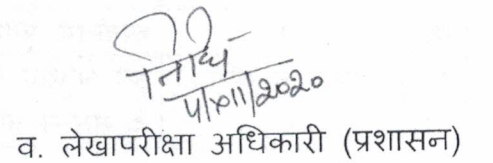 निधि
4/XII/2020
व. लेखापरीक्षा अधिकारी (प्रशासन)